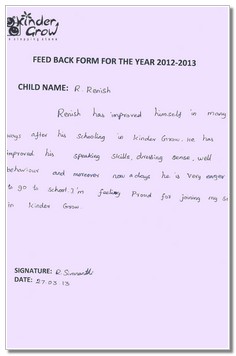 Kinder
Grow
a stepping stone
FEED BACK FORM FOR THE YEAR 2012-2013
CHILD NAME: R. Renish
Renish has improved himself in many
ways after his schooling in kinder Grow. He has
improved his speaking skills, dressing sense, well
behaviour and moreover now a days he is very eager
to go to school. I'm feeling Proud for joining my
in kinder Grow.
SIGNATURE:
DATE: 27.03.13